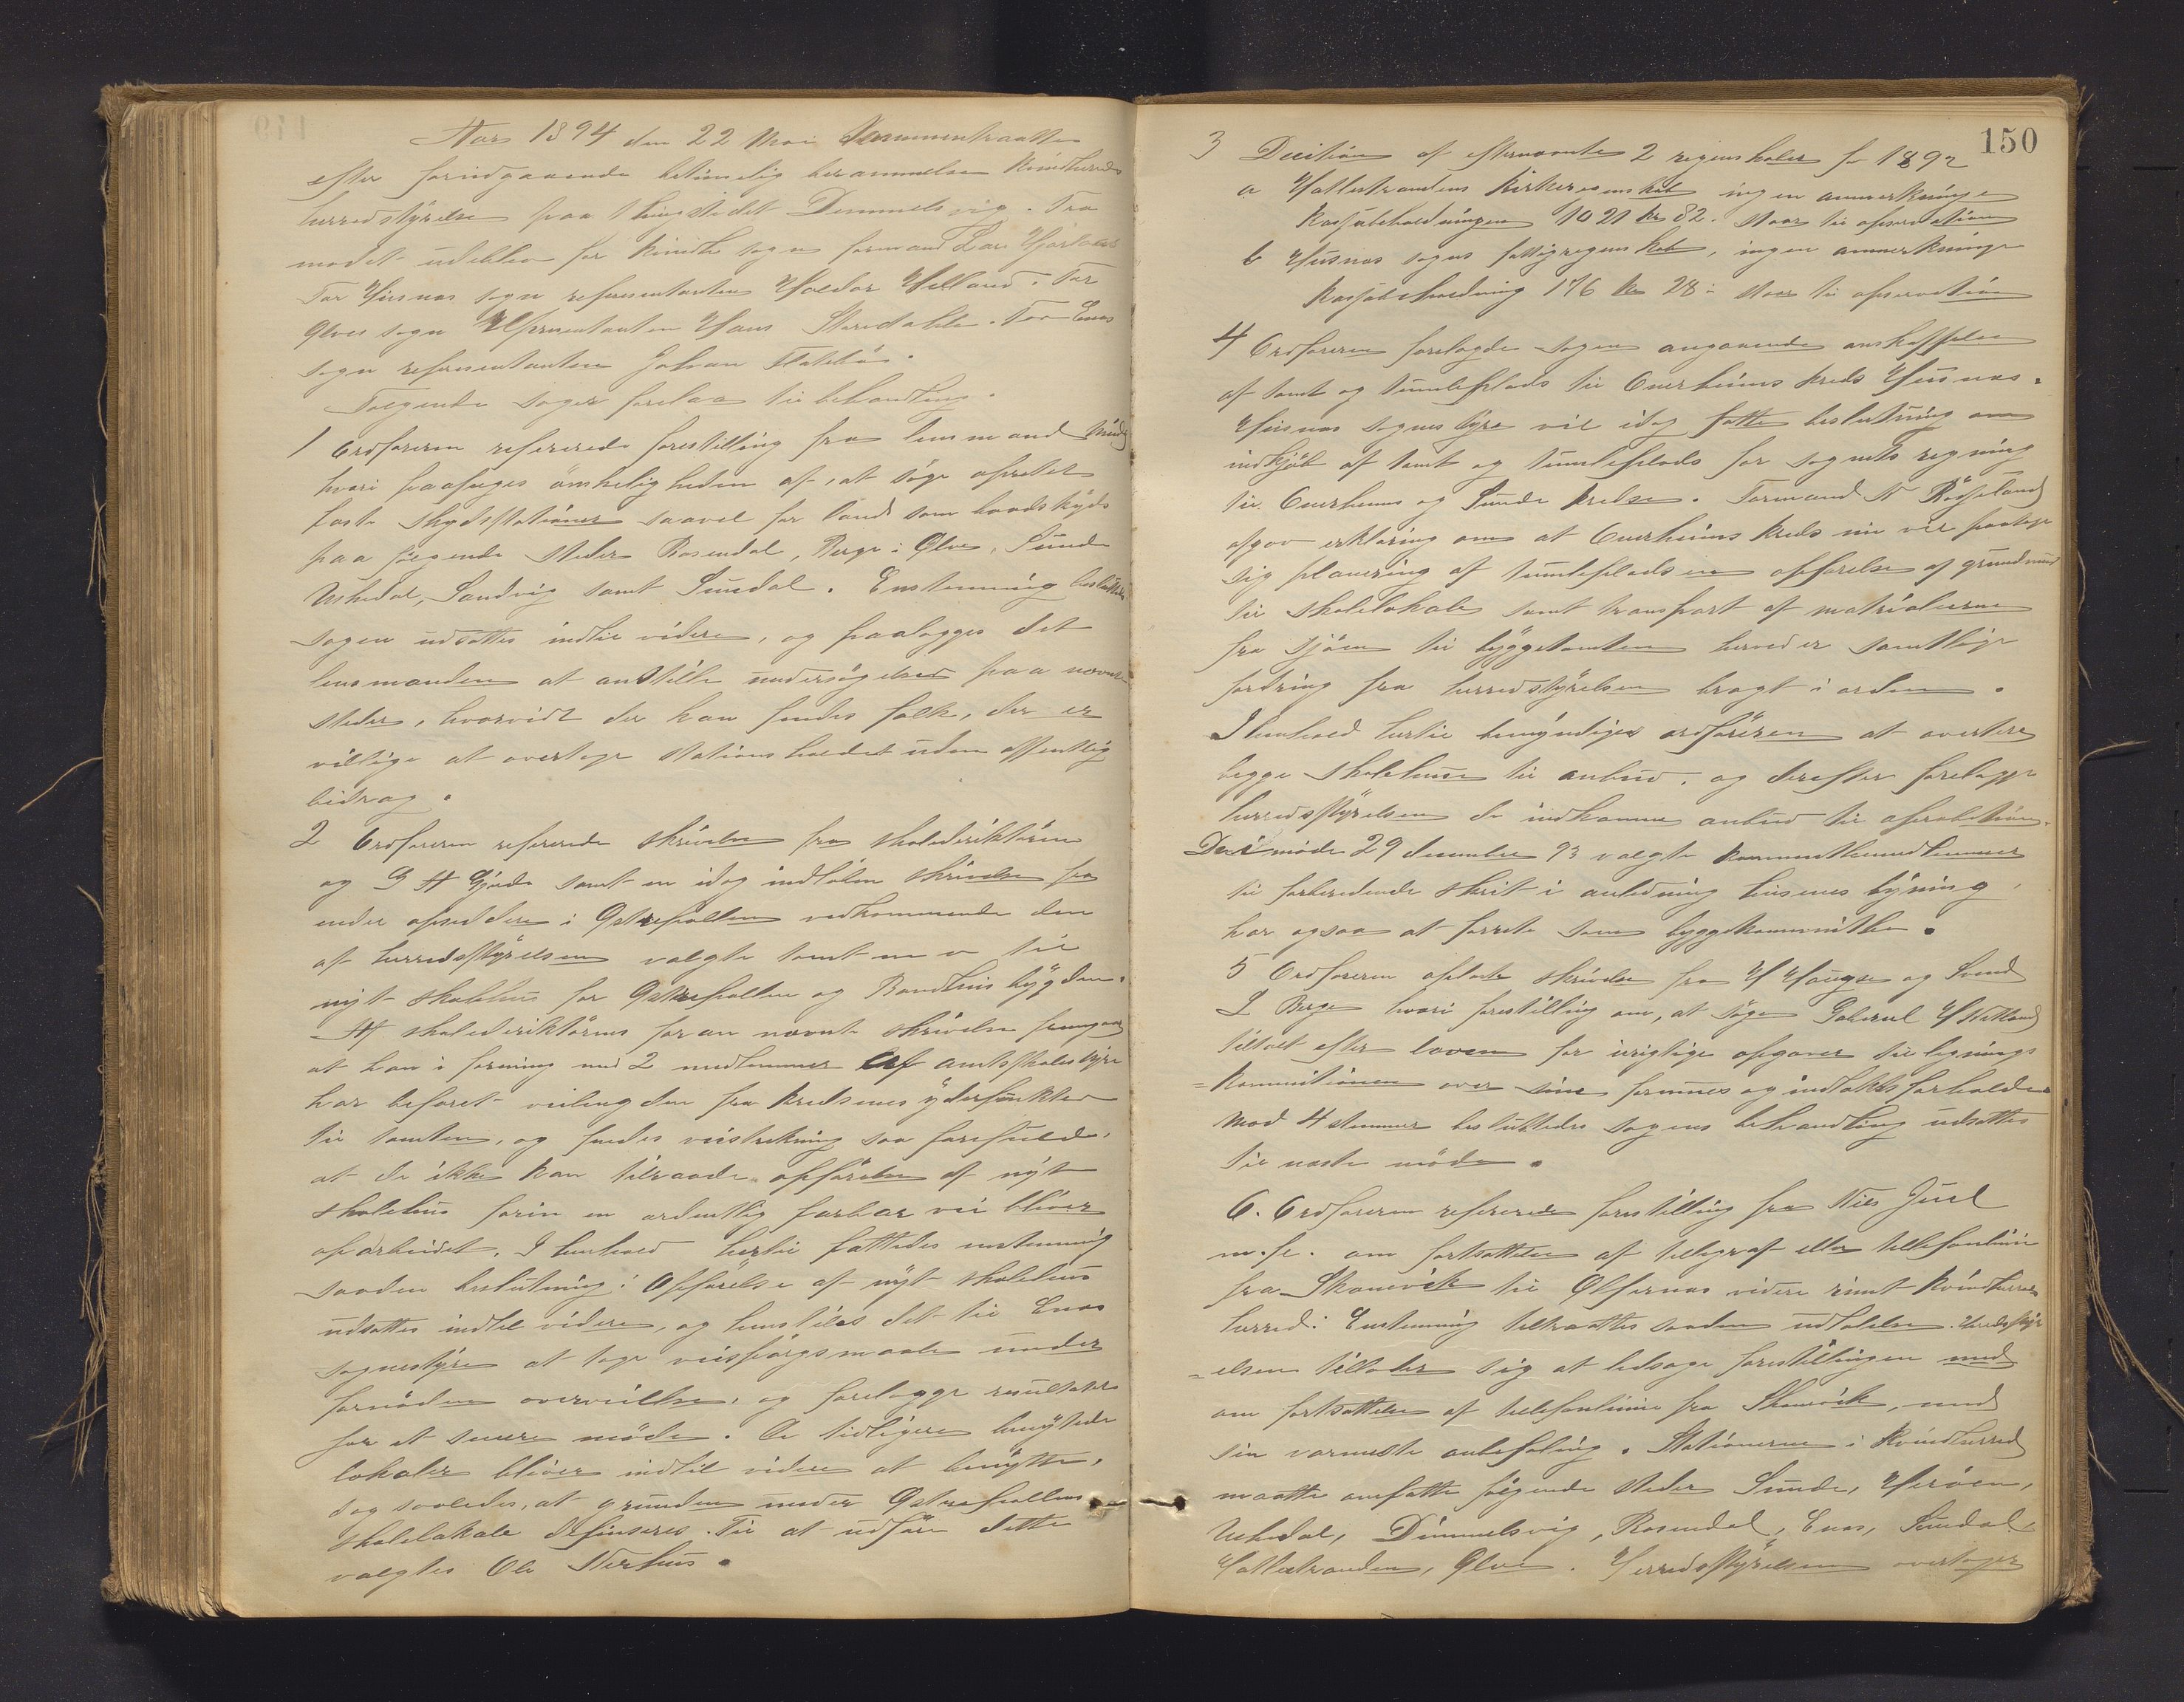 Aar 1894 den 22 Mai Sammentraatte
efter forudgaaende betimelig berammelse Kvindherreds
herredstyrelse paa thingstedet Dimmelsvig. Fra
mødet udeblev for Kvindh sogn formand Lar
For Husnæs sogn representanten Haldor Helland. For
Ølves sogn Representanten Hans. For Enæs
sogn representanten Johan
Følgende sager forelaa til behandling.
1 Ordføreren refererede forestilling fra lensmand
hvori paapeges ønskeligheden af, at søge oprettet
faste Skydsstationer saavel for lands som baadskyds
paa følgende steder Rosendal, Berge i Ølve, Sunde
Uskedal, Sandvig samt Sundal. Enstemmig besluttedes
sagen udsattes indtil videre, og paalægges det
lensmanden at anstille undersøgelser paa nævnte
steder, hvorvidt der kan findes folk, der er
villige at overtage stationsholdet uden offentlig
bidrag.
2 Ordføreren refererede skrivelse fra skoledirektøren
og G H Gjerde samt en idag indløben skrivelse fra
endel opsiddere i Østrepollen vedkommende den
af herredsstyrelsen valgte tomt til
nyt skolehus for Østrepollen og bygden.
Af skoledirektørens foran nævnte skrivelse fremgaar
at han i forening med 2 medlemmer af amtsskolestyre
har befaret veilengden fra kredsenes yderpunkter
til tomten, og findes veistrekning saa farefulde,
at de ikke kan tilraade opførelse af nyt
skolehus førin en ordentlig farbar vei bliver
oparbeidet. I henhold hertil fattedes enstemmig
saaden beslutning: Opførelse af nyt skolehus
udsattes indtil videre, og henstilles det til Enæs
sognestyre at tage veispørgsmaalet under
fornøden overveielse, og forelægge resultatet
for et senere møde. De tidligere benyttede
lokaler bliver indtil videre at benytte,
dog saaledes, at grunden under Østrepollens
skolelokale. Til at udføre dette
valgtes Ole Nerhus.
150
3 Decision af efternævnte 2 regenskaber for 1892
a Hattestrandens Kirkeregenskab ingen anmerkninge
Kassabeholdningen 1021 kr 82. staar til observation
b Husnæs sogns fattigregenskab, ingen anmerkninge
Kassabeholdning 176 kr 28. staar til observation
4 Ordføreren forelagde sagen angaaende anskaffelse
af tomt og tumleplads til Omerheims kreds Husnæs.
Husnæs sognestyre vil idag fatte beslutning om
indkjøb af tomt og tumleplads for sognets regning
til Omerheims og Sunde kredse. Formand N Røgseland
afgav erklæring om at Omerheims kreds nu vil paatage
sig planering af tumlepladsen opførelse af grundmur
til skolelokale samt transport af matrialierne
fra sjøen til byggetomten herved er samtlige
fordring fra herredstyrelsen bragt i orden.
I henhold hertil bemyndiges ordføreren at avertere
begge skolehuse til anbud, og derefter forelægge
herredsstyrelsen de indkomne anbud til aprobation.
Den i møde 29 desember 93 valgte kommitemedlemmer
til forberedende skrit i anledning husenes bygning,
har ogsaa at forrete som byggekommitte.
5 Ordføreren oplæste skrivelse fra H Haugse og Svend
L Berge hvori forestilling om, at søge Gabriel H
tiltalt efter loven for urigtige opgaver til lignings
=kommisionen over sine formues og indtækts forholde
Mod 4 stemmer besluttedes sagens behandling udsattes
til næste møde.
6. Ordføreren refererede forestilling fra Nils Juel
m. fl. om fortsættelse af telegraf eller tellefonlinie
fra Skonevik til Ølfernæs videre rundt Kvindherreds
herred: Enstemmig tiltraattes saaden udtalelse. Herredsstyr
=elsen tillader sig at ledsage forestillingen med
om fortsættelse af tellefonlinie fra Skonevik, med
sin varmeste anbefaling. Stationerne i Kvindherred
maatte omfatte følgende steder Sunde, Herøen,
Uskedal, Dimmelsvig, Rosendal, Enæs, Sundal
Hattestranden, Ølve. Herredsstyrelsen overtager